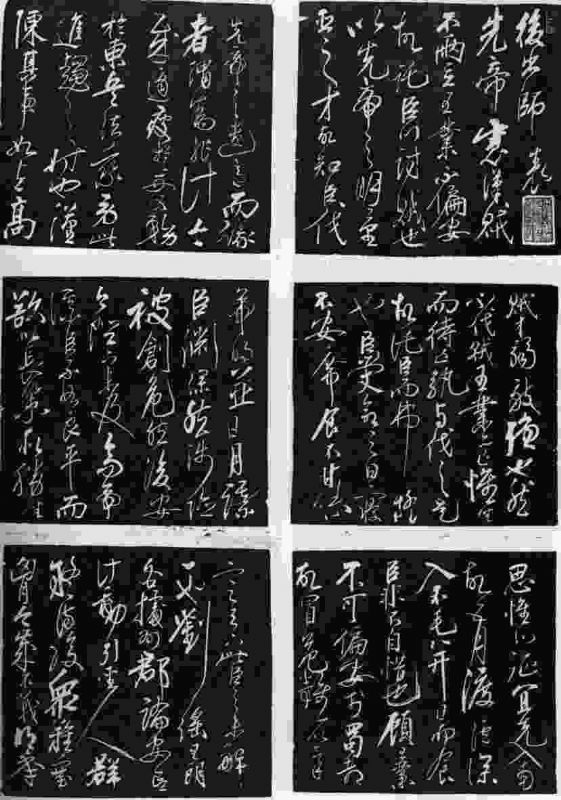 後出師表
先帝慮漢賊
不兩立王業不偏安
故託臣以討賊也
以先帝之明量
臣之才故知臣伐
賊才弱敵強也然
不伐賊王業亦亡惟坐
而待亡孰與伐之是
故託臣而弗疑
也臣受命之日寢
不安席食不甘味
思惟北征宜先入南
故五月渡瀘深
入不毛并日而食
臣非不自惜也顧王業
不可偏安於蜀都
故冒危難以奉
先帝之遺意而議
者謂為非計今
賊適疲於西又務
於東兵法乘勞此
進趨之時也謹
陳其事如左高
帝明並日月謀
臣淵深然涉險
被創危然後安
今陛下未及高帝
謀臣不如良平而
欲以長策取勝坐
定天下此臣之未解
一也劉繇王朗
各據州郡論安言
計動引聖人群
疑滿腹眾難塞
胸今歲不戰明年